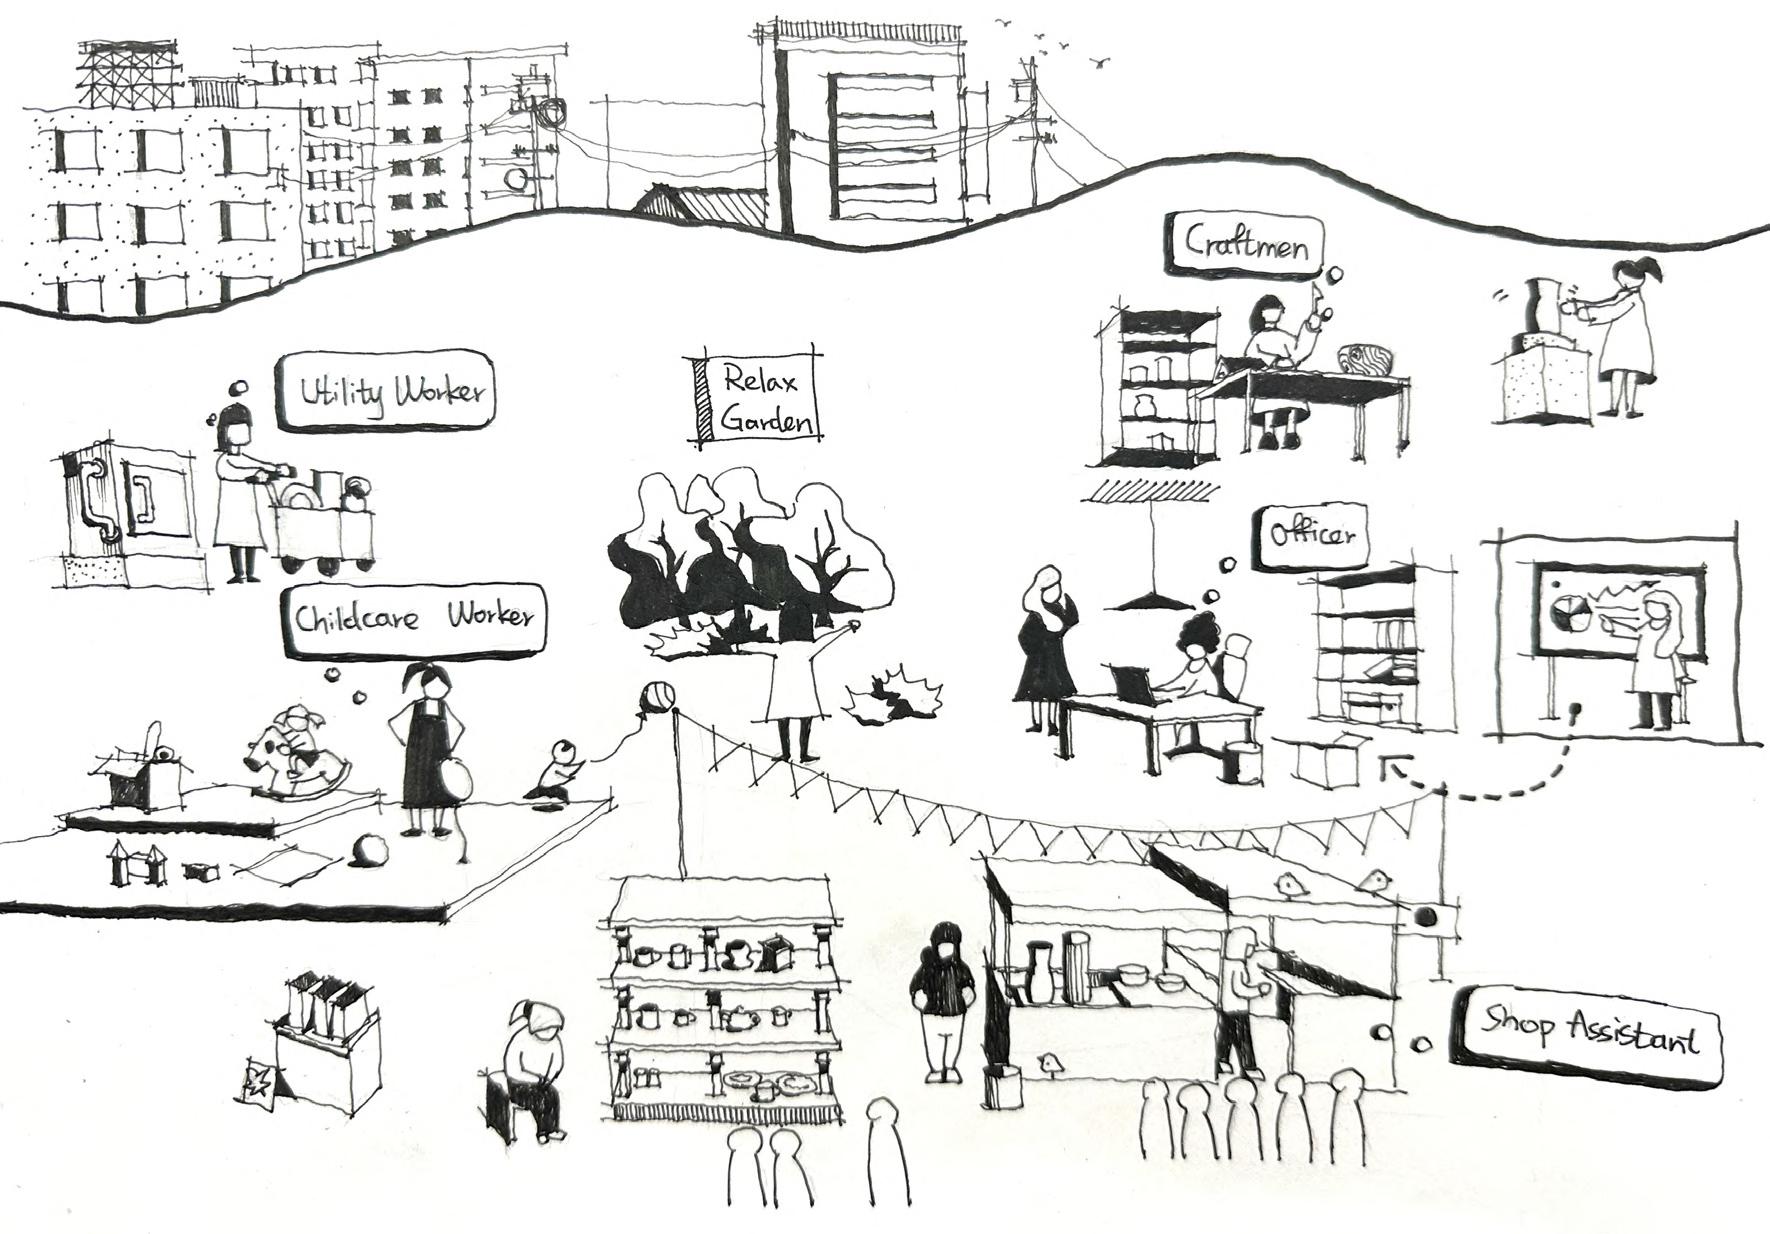 Craftmen
Utility Worker
Relax
Garden
Officer
Childcare Worker
Shop Assistant